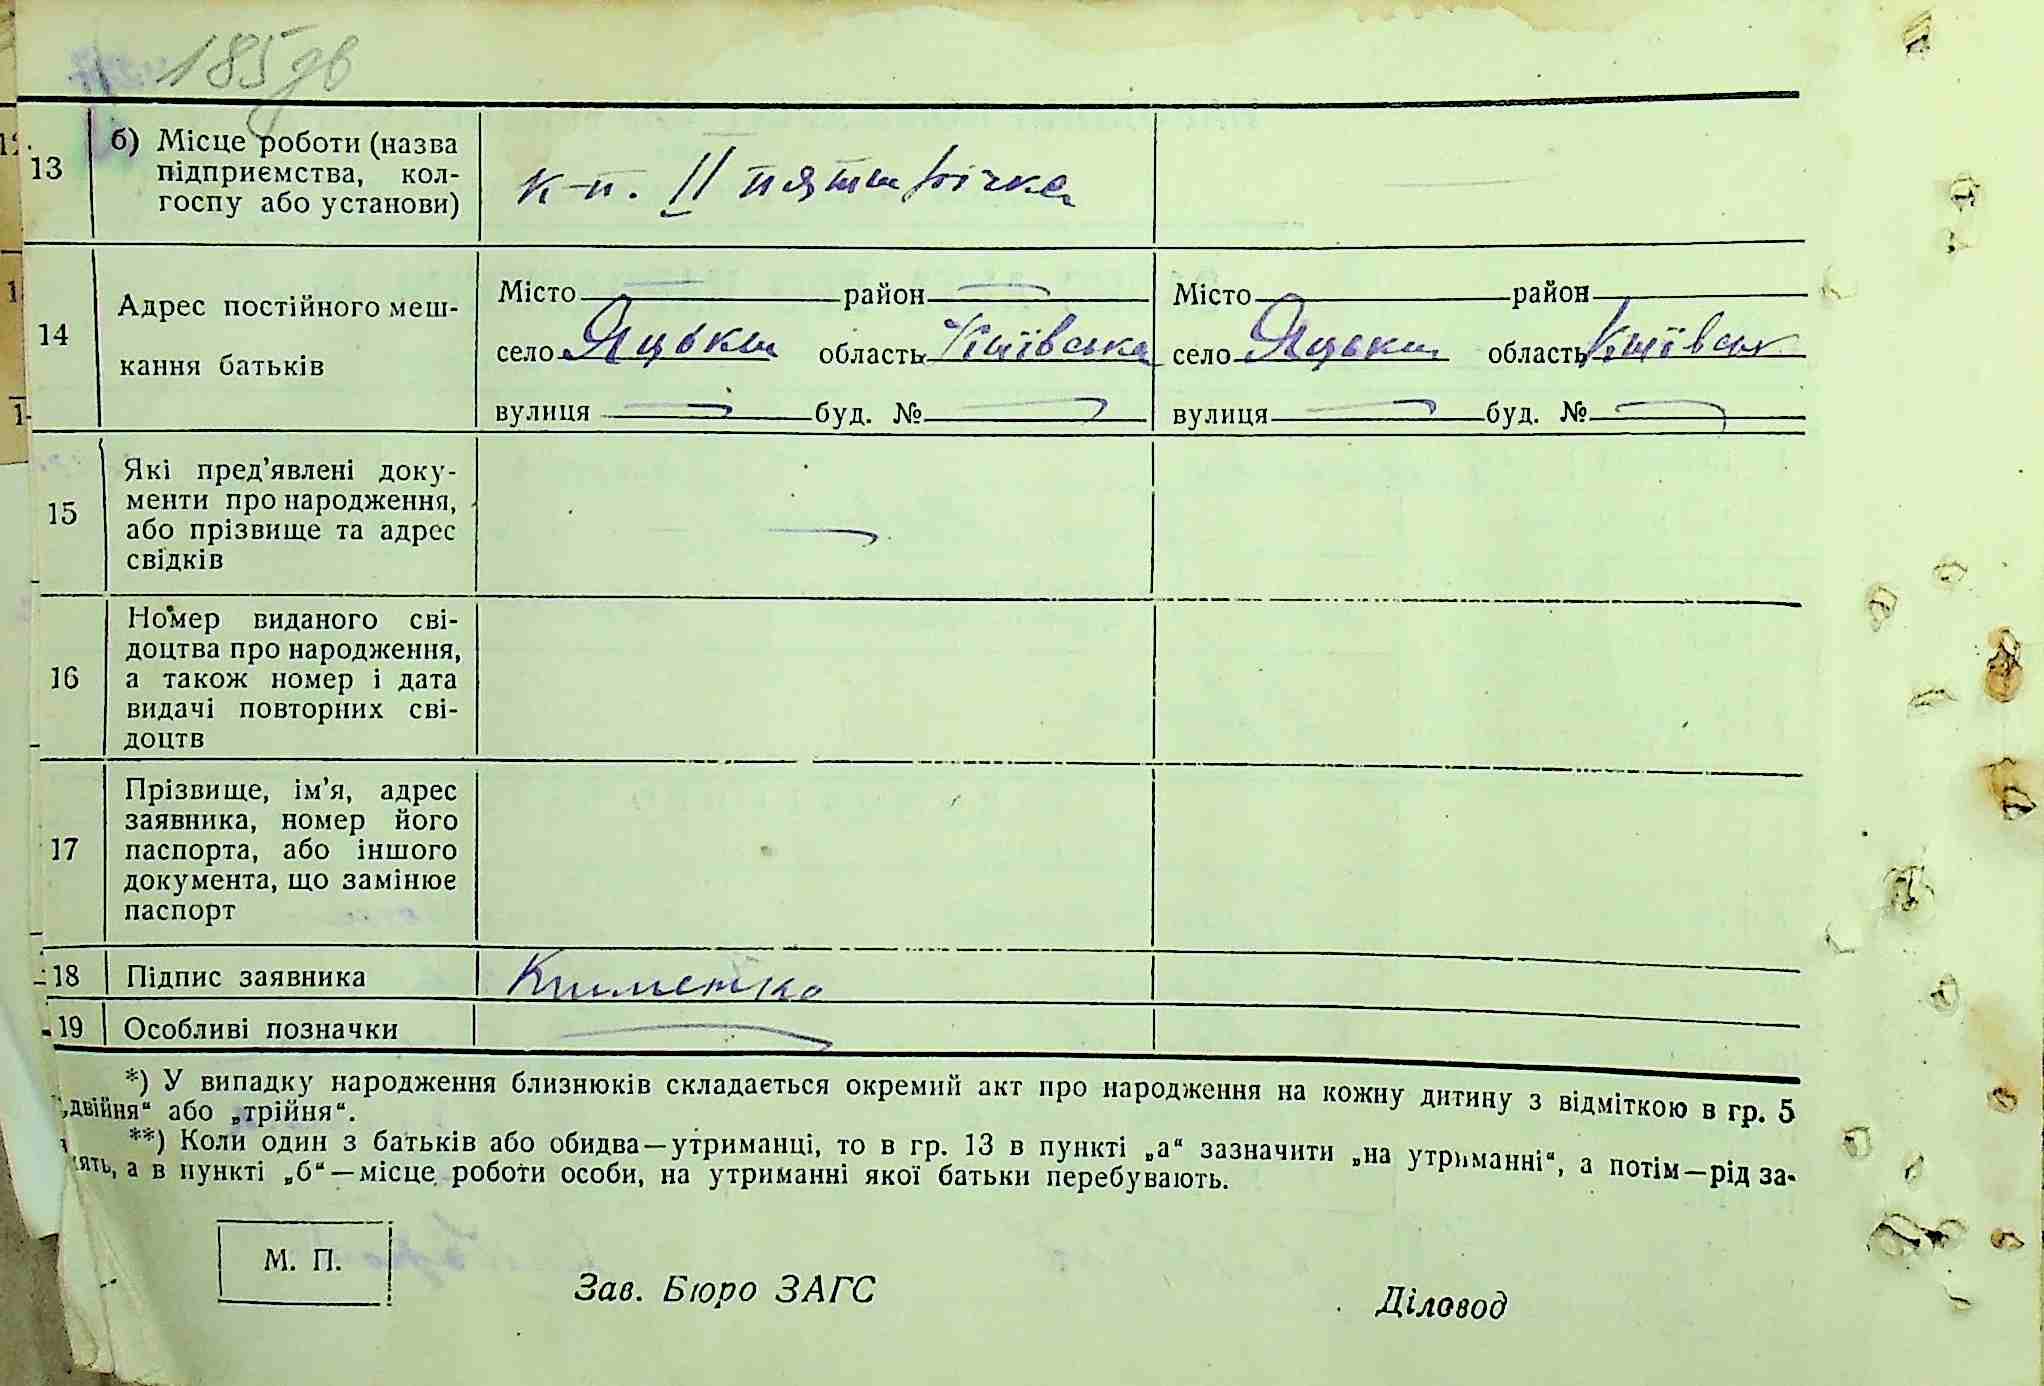 185 зв
13 б) Місце роботи (назва
підприємства, кол-
госпу або установи)
к-п. II пятирічка
14 Адрес постійного меш-
кання батьків
Місто район Місто район
село Яцьки область Київська село Яцьки область Київськ
вулиця буд. № вулиця буд. №
15 Які пред’явлені доку-
менти про народження,
або прізвище та адрес
свідків
16 Номер виданого сві-
доцтва про народження,
а також номер і дата
видачі повторних сві-
доцтв
17 Прізвище, ім’я, адрес
заявника, номер його
паспорта, або іншого
документа, що замінює
паспорт
18 Підпис заявника
19 Особливі позначки
*) У випадку народження близнюків складається окремий акт про народження на кожну дитину з відміткою в гр. 5
„двійня“ або „трійня“.
**) Коли один з батьків або обидва—утриманці, то в гр. 13 в пункті „а“ зазначити „на утриманні“, а потім—рід за-
ять, а в пункті „б“—місце роботи особи, на утриманні якої батьки перебувають.
М. П.
Зав. Бюро ЗАГС Діловод